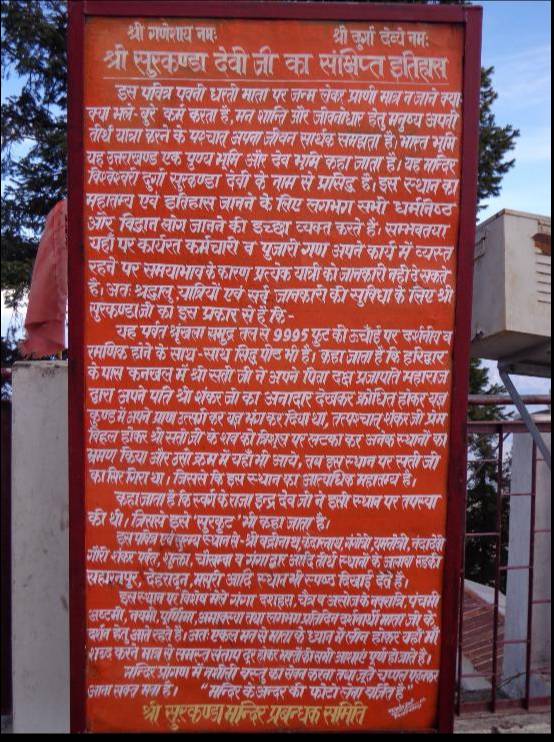 श्री गणेशाय नमः श्री दुर्गा देव्यै नमः
श्री सुरकण्डा देवी जी का संक्षिप्त इतिहास
इस पवित्र पृथ्वी धरती माता पर जन्म लेकर प्राणी मात्र न जाने क्या
क्या भले-बुरे कर्म करता है, मन शान्ति और जीवनोधार हेतु मनुष्य अपनी
तीर्थ यात्रा करने के पश्चात् अपना जीवन सार्थक समझता है, भारत भूमि
यह उत्तराखण्ड एक पुण्य भूमि और देव भूमि कहा जाता है। यह मन्दिर
दुर्गा सुरकण्डा देवी के नाम से प्रसिद्ध है। इस स्थान का
महातम्य एवं इतिहास जानने के लिए लगभग सभी धर्मनिष्ठ
और विद्वान लोग जानने की इच्छा व्यक्त करते हैं। सम्भवतया
यहाँ पर कार्यरत कर्मचारी व पुजारी गण अपने कार्य में व्यस्त
रहने पर समयाभाव के कारण प्रत्येक यात्री को जानकारी नहीं दे सकते
है। अतः श्रद्धालु यात्रियों एवं सर्व जानकारी की सुविधा के लिए श्री
सुरकण्डाजी का इस प्रकार से है कि -
यह पर्वत श्रृंखला समुद्र तल से 9995 फुट की ऊँचाई पर दर्शनीय व
रमणिक होने के साथ-साथ सिद्ध पीठ भी है। कहा जाता है कि हरिद्वार
के पास कनखल में श्री सती जी ने अपने पिता दक्ष प्रजापती महाराज
द्वारा अपने पति श्री शंकर जी का अनादर देखकर क्रोधित होकर यज्ञ
कुण्ड में अपने प्राण उत्सर्ग कर यज्ञ भंग कर दिया था, तत्पश्चात् शंकर जी प्रेम
विहल होकर श्री सती जी के शव को त्रिशूल पर लटका कर अनेक स्थानों का
भ्रमण किया और उसी क्रम में यहाँ भी आये, तब इस स्थान पर सती जी
का सिर गिरा था, जिससे कि इस स्थान का आत्यधिक महातम्य है।
कहा जाता है कि स्वर्ग के राजा इन्द्र देव जी ने इसी स्थान पर तपस्या
की थी। जिससे इसे 'सुरकूट' भी कहा जाता है।
इस पवित्र एवं पुण्य स्थान से - श्री बद्रीनाथ, केदारनाथ, गंगोत्री, यमनोत्री, नन्दादेवी
गौरी शंकर पर्वत, व गंगाद्वार आदि तीर्थ स्थानों के अलावा रूड़की
सहारनपुर, देहरादून, मसूरी आदि स्थान भी स्पष्ठ दिखाई देते है।
इस स्थान पर विशेष मेले गंगा दशहरा, चैत्र व असोज के नवरात्रि, पंचमी
अष्टमी, नवमी, पूर्णिमा, अमावस्या तथा लगभग प्रतिदिन दर्शनार्थी माता जी के
दर्शन हेतु आते रहते है। अतः एकल मन से माता के ध्यान में लीन होकर यहाँ माँ
शब्द करने मात्र से समस्त संताप दूर होकर भक्तों की सभी आशाएं पूर्ण हो जाते है।
मन्दिर प्रांगण में नशीली वस्तु का सेवन करना तथा जूते चप्पल पहनकर
आना सख्त मना है। "मन्दिर के अन्दर की फोटो लेना वर्जित है"
श्री सुरकण्डा मन्दिर प्रबन्धक समिति